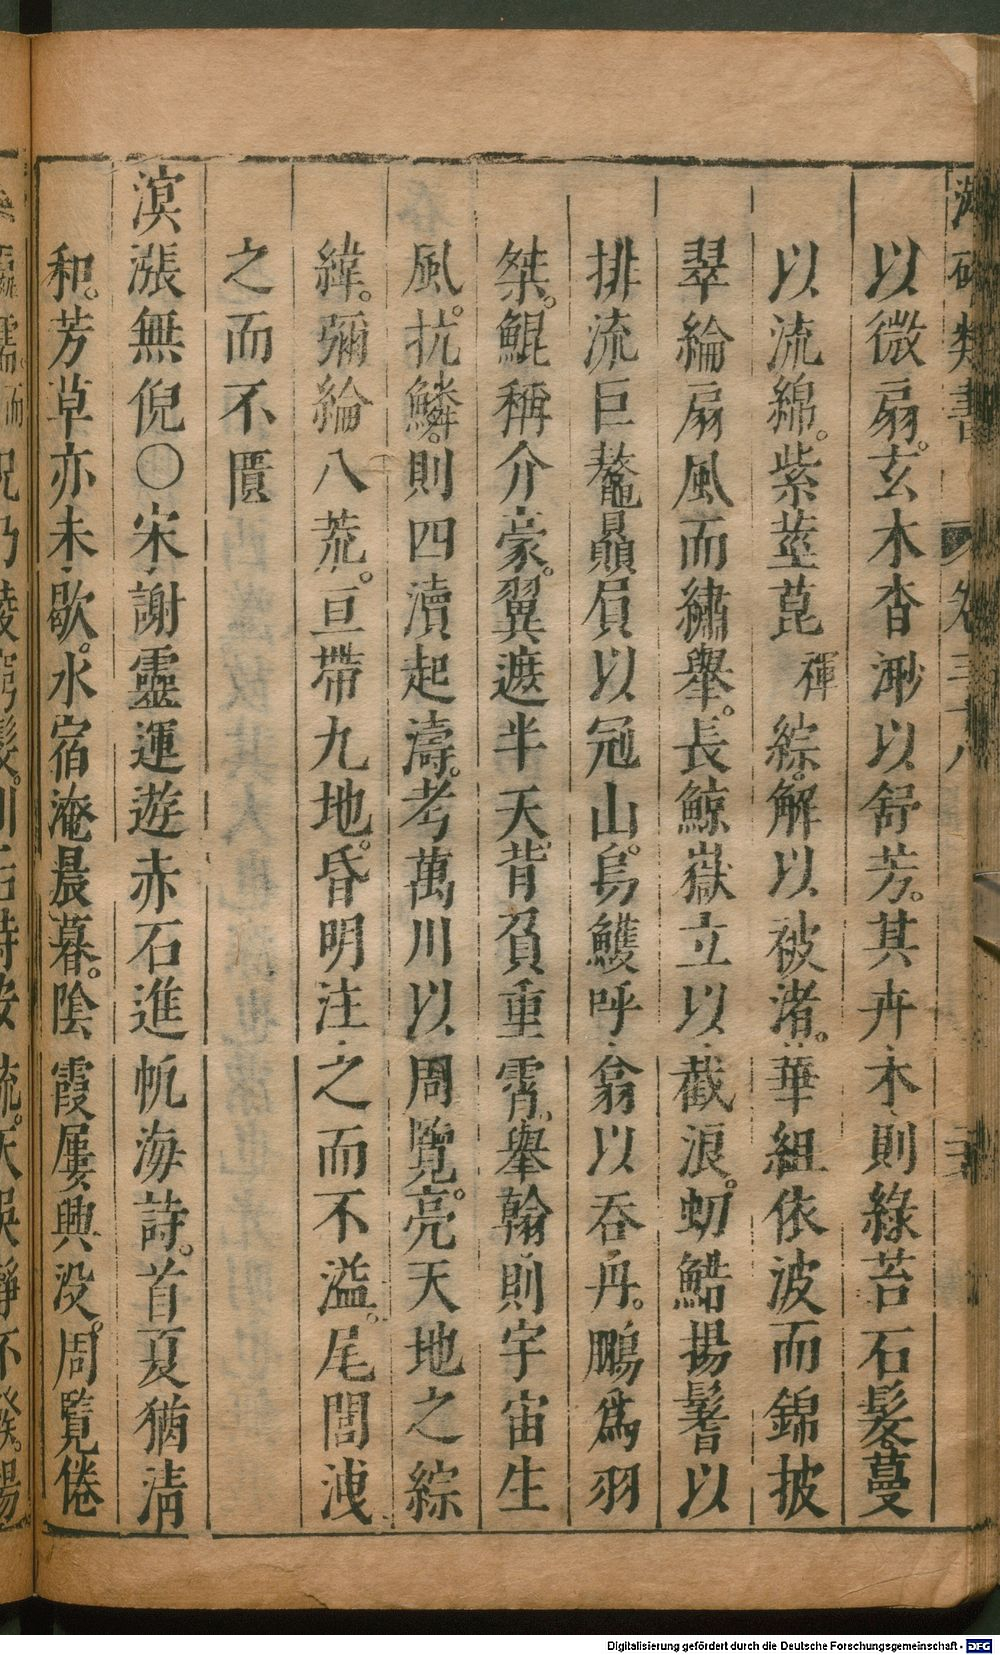 以微扇。玄木杳渺以舒芳。其卉木則綠苔石髮。蔓
以流綿。紫莖菎褌綜。解以被渚。華組依波而錦披
翠綸扇風而繡舉。長鯨嶽立以截浪。蚏鯌揚鬐以
排流巨鼇贔屓以冠山。烏鱯呼翕以吞舟。鵬為羽
桀。鯤稱介豪。翼遮半天背負重霄。舉翰則宇宙生
風。抗鱗。則四瀆起濤。考萬川以周覽。亮天地之綜
緯。彌綸八荒。亘帶九地。昏明注之而不溢。尾閭洩
之而不匱
溟漲無倪〇宋謝靈運遊赤石進帆海詩。首夏猶清
和。芳草亦未歇。水宿淹晨暮。陰霞屢興没。周覽倦